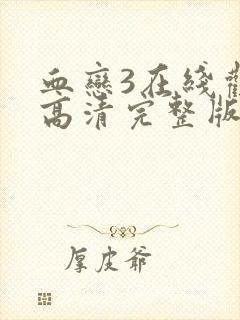 血戀3在綫觀
高清完整版
厚皮爺